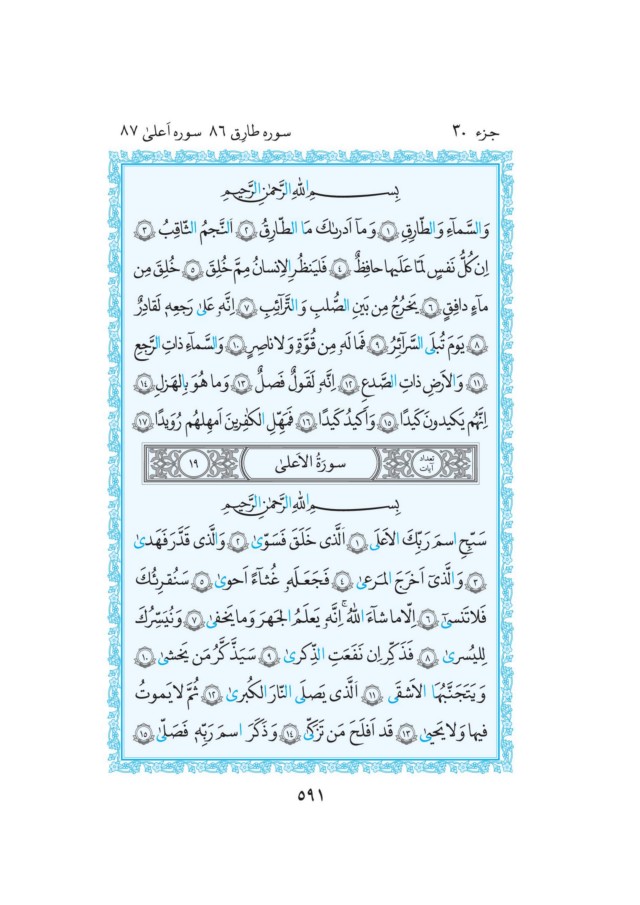 جزء ۳۰
سوره طارِق ۸۶ سوره اَعلیٰ ۸۷
بِسـمِ اللهِ الرَّحمٰنِ الرَّحيمِ
وَالسَّمآءِ وَالطّارِقِ ۱ وَمآ اَدرىٰكَ مَا الطّارِقُ ۲ اَلنَّجمُ الثّاقِبُ ۳
اِن كُلُّ نَفسٍ لَمّا عَلَيها حافِظٌ ۴ فَليَنظُرِ الاِنسانُ مِمَّ خُلِقَ ۵ خُلِقَ مِن
مآءٍ دافِقٍ ۶ يَخرُجُ مِن بَينِ الصُّلبِ وَ التَّرآئِبِ ۷ اِنَّهٗ عَلىٰ رَجعِهٖ لَقادِرٌ
۸ يَومَ تُبلَى السَّرآئِرُ ۹ فَما لَهٗ مِن قُوَّةٍ وَ لا ناصِرٍ ۱۰ وَالسَّمآءِ ذاتِ الرَّجعِ
۱۱ وَ الاَرضِ ذاتِ الصَّدعِ ۱۲ اِنَّهٗ لَقَولٌ فَصلٌ ۱۳ وَ ما هُوَ بِالهَزلِ ۱۴
اِنَّهُم يَكيدونَ كَيدًا ۱۵ وَ اَكيدُ كَيدًا ۱۶ فَمَهِّلِ الكٰفِرينَ اَمهِلهُم رُوَيدًا ۱۷
تعداد آیات
سورَةُ الاَعلىٰ
۱۹
بِسـمِ اللهِ الرَّحمٰنِ الرَّحيمِ
سَبِّحِ اسمَ رَبِّكَ الاَعلَى ۱ اَلَّذى خَلَقَ فَسَوّىٰ ۲ وَالَّذى قَدَّرَ فَهَدىٰ
۳ وَ الَّذىٓ اَخرَجَ المَرعىٰ ۴ فَجَعَلَهٗ غُثآءً اَحوىٰ ۵ سَنُقرِئُكَ
فَلا تَنسىٰٓ ۶ اِلّا ما شآءَ اللهُ ۚ اِنَّهٗ يَعلَمُ الجَهرَ وَ ما يَخفىٰ ۷ وَ نُيَسِّرُكَ
لِليُسرىٰ ۸ فَذَكِّر اِن نَفَعَتِ الذِّكرىٰ ۹ سَيَذَّكَّرُ مَن يَخشىٰ ۱۰
وَ يَتَجَنَّبُهَا الاَشقَى ۱۱ اَلَّذى يَصلَى النّارَ الكُبرىٰ ۱۲ ثُمَّ لا يَموتُ
فيها وَ لا يَحيىٰ ۱۳ قَد اَفلَحَ مَن تَزَكّىٰ ۱۴ وَ ذَكَرَ اسمَ رَبِّهٖ فَصَلّىٰ ۱۵
۵۹۱